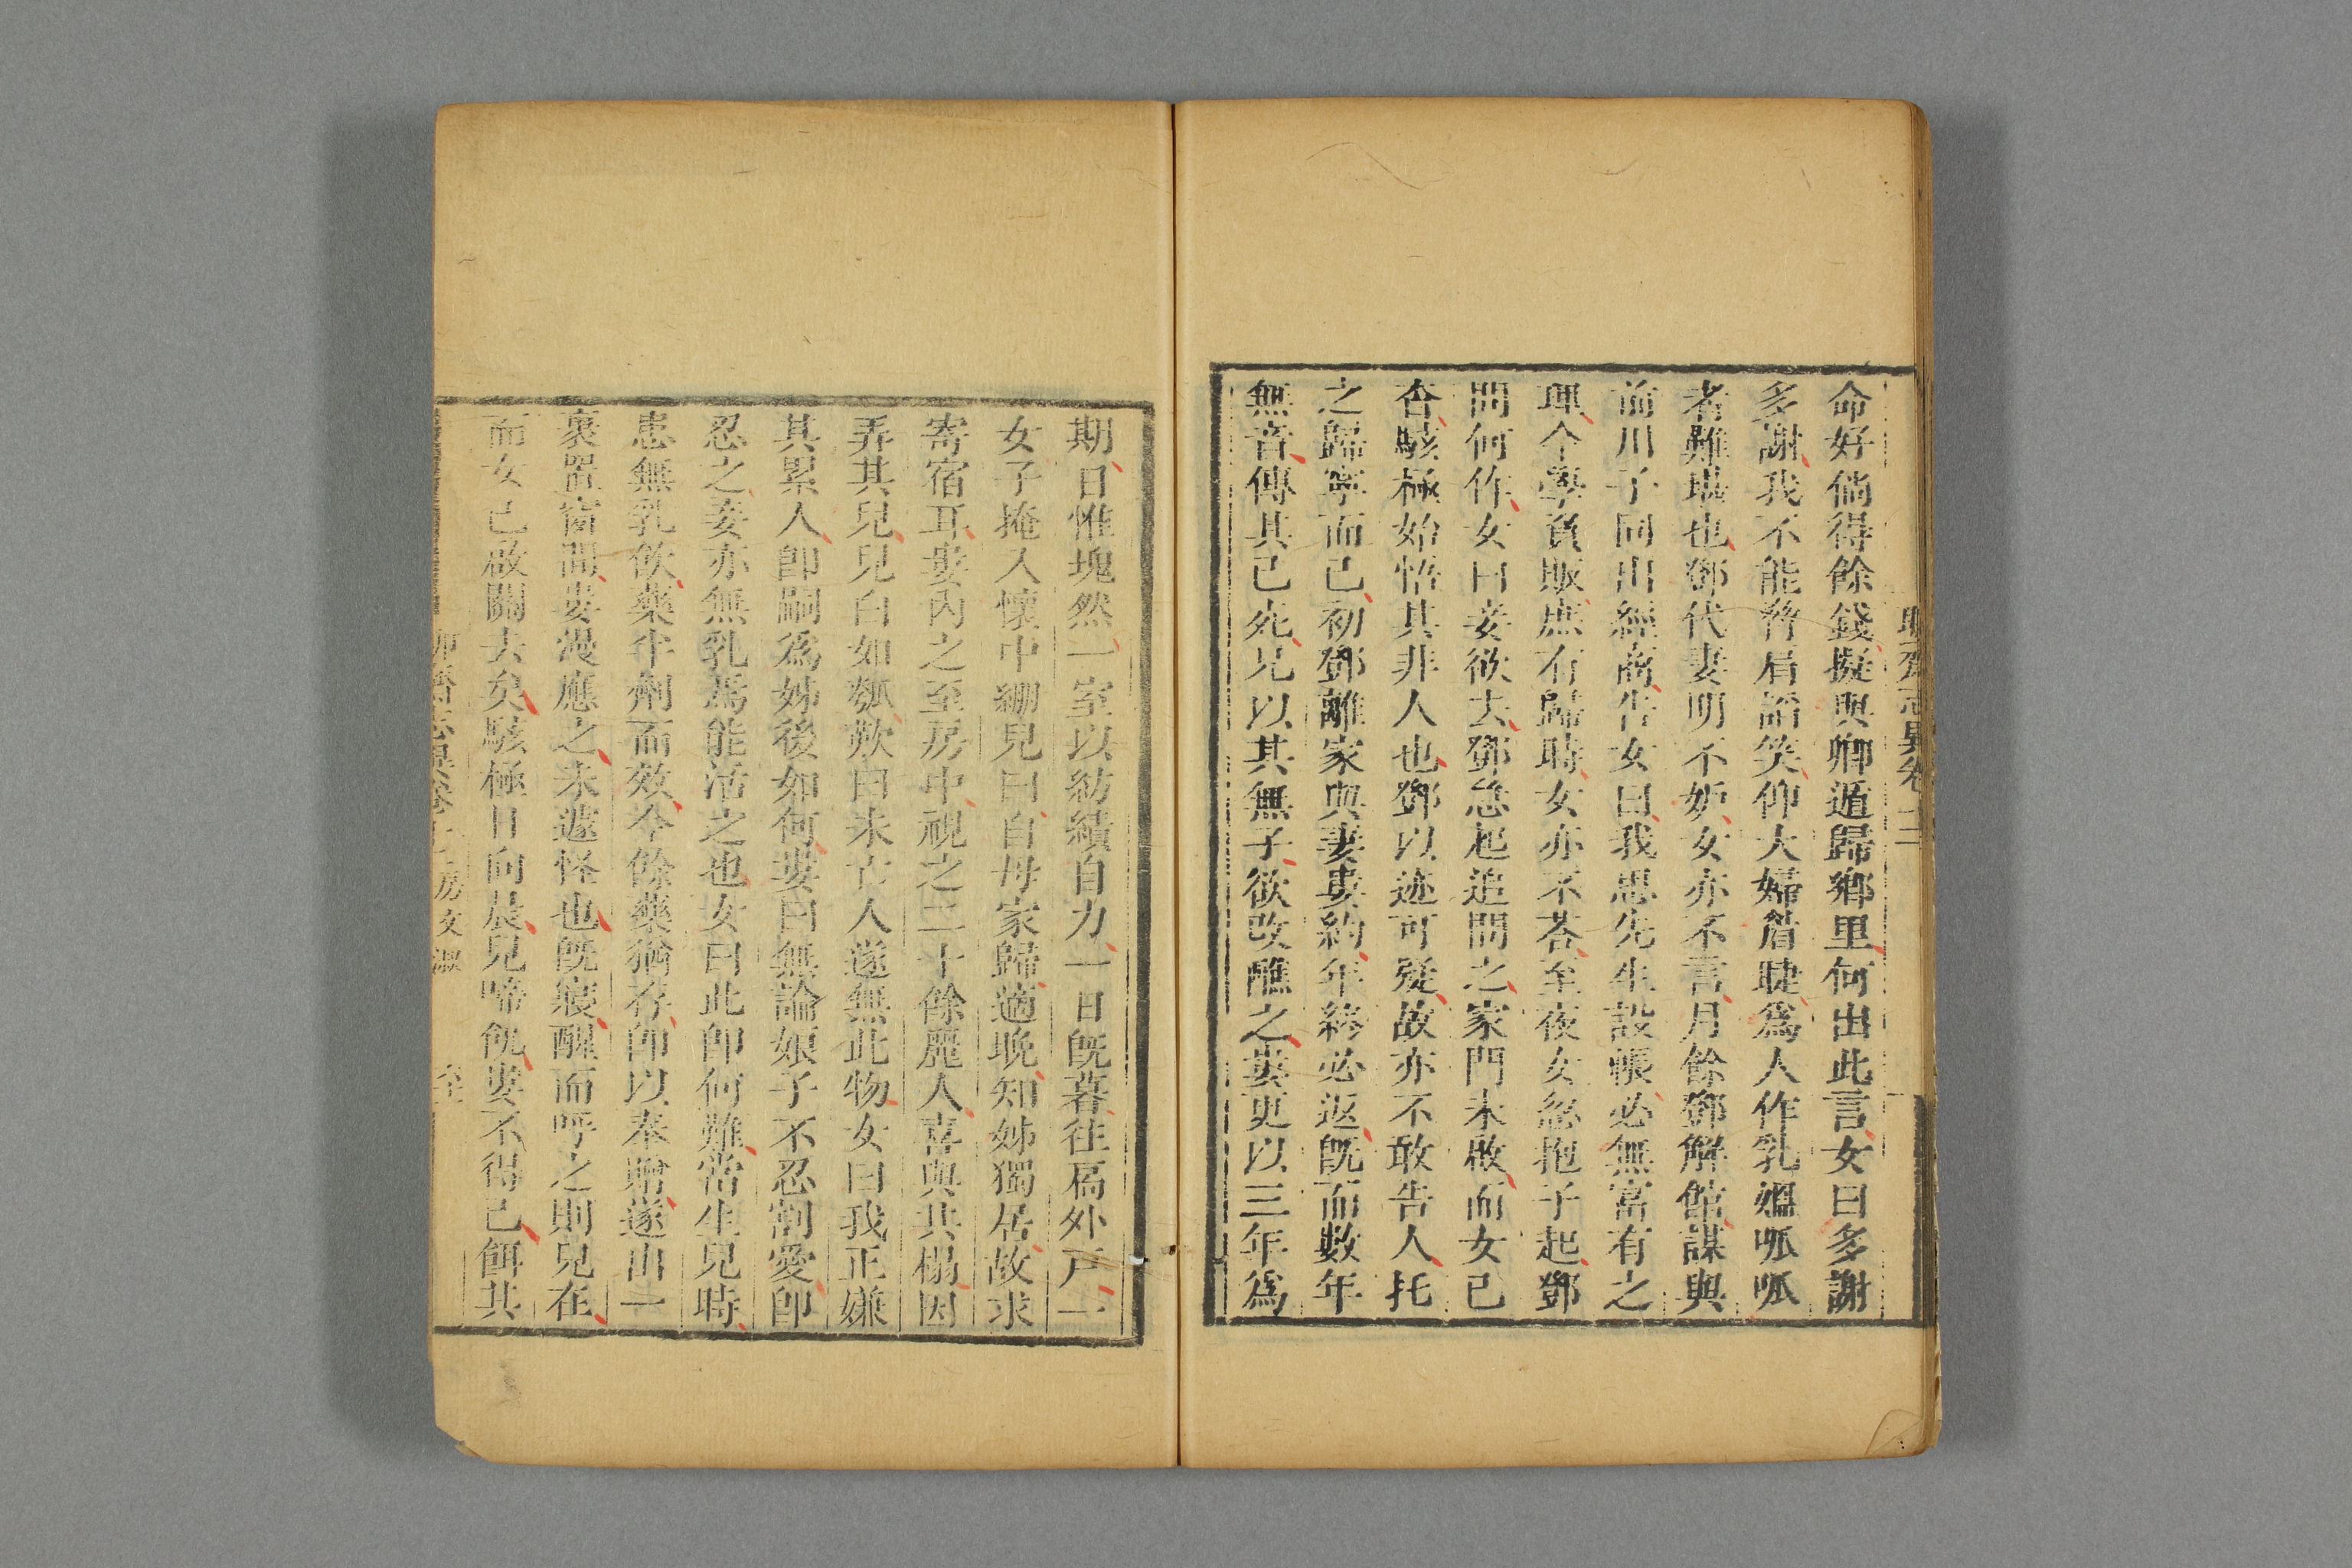 聊齋志異卷十二
命好倘得餘錢擬與卿遁歸鄉里何出此言女曰多謝
多謝我不能脅肩諂笑仰大婦眉睫爲人作乳媼呱呱
者難堪也鄧代妻明不妒女亦不言月餘鄧解館謀與
前川子同出經商告女曰我思先生設帳必無富有之
理今學負販庶有歸時女亦不荅至夜女忽抱子起鄧
問何作女曰妾欲去鄧急起追問之家門未啟而女已
杳駭極始悟其非人也鄧以迹可疑故亦不敢告人托
之歸寧而已初鄧離家與妻婁約年終必返既而數年
無音傳其已死兄以其無子欲改醮之婁更以三年爲
期日惟塊然一室以紡績自力一日既暮往扃外戶一
女子掩入懷中繃兒曰自母家歸適晚知姊獨居故求
寄宿耳婁內之至房中視之二十餘麗人喜與共榻因
弄其兒兒白如瓠歎曰未亡人遂無此物女曰我正嫌
其累人即嗣爲姊後如何婁曰無論娘子不忍割愛即
忍之妾亦無乳爲能活之也女曰此即何難當生兒時
患無乳飲藥半劑而效今餘藥猶存即以奉贈遂出一
裹置窗間婁漫應之未遽怪也既寢醒而呼之則兒在
而女已啟關去矣駭極日向晨兒啼飢婁不得已餌其